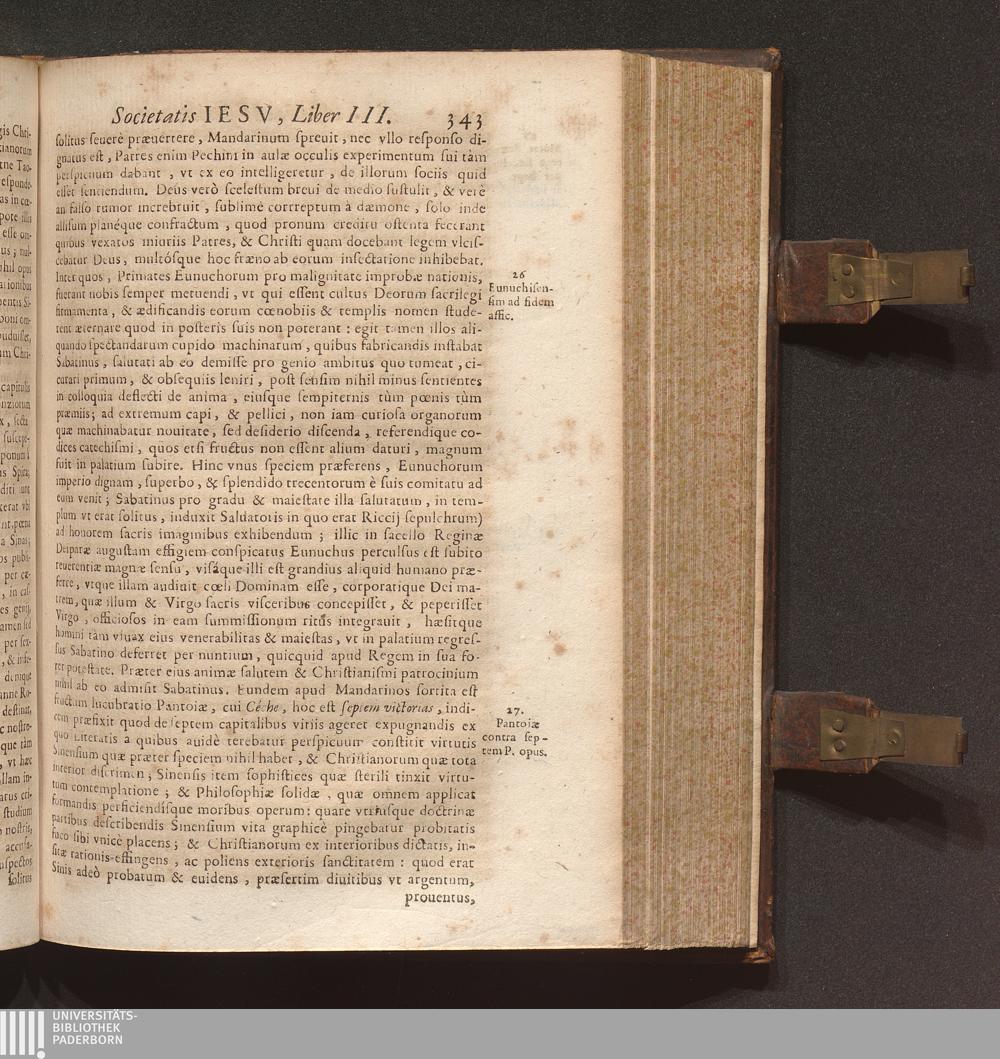 Societatis IESV, Liber III. 343
solitus seuerè præuertere, Mandarinum spreuit, nec vllo responso di-
gnatus est, Patres enim Pechini in aulæ occulis experimentum sui tàm
perspicuum dabant, vt ex eo intelligeretur, de illorum sociis quid
esset sentiendum. Deus verò scelestum breui de medio sustulit, & verè
an falso rumor increbruit, sublimè correptum à dæmone, solo inde
allisum planéque confractum, quod pronum creditu ostenta fecerant
quibus vexatos iniuriis Patres, & Christi quam docebant legem vlcis-
cebatur Deus, multósque hoc fræno ab eorum insectatione inhibebat.
Inter quos, Primates Eunuchorum pro malignitate improbæ nationis,
fuerant nobis semper metuendi, vt qui essent cultus Deorum sacrilegi
firmamenta, & ædificandis eorum cœnobiis & templis nomen stude-
rent æternare quod in posteris suis non poterant: egit tamen illos ali-
quando spectandarum cupido machinarum, quibus fabricandis instabat
Sabatinus, salutati ab eo demisse pro genio ambitus quo tumeat, ci-
curari primum, & obsequiis leniri, post sensim nihil minus sentientes
in colloquia deflecti de anima, eiusque sempiternis tùm pœnis tùm
præmiis; ad extremum capi, & pellici, non iam curiosa organorum
quæ machinabatur nouitate, sed desiderio discenda, referendique co-
dices catechismi, quos etsi fructus non essent alium daturi, magnum
fuit in palatium subire. Hinc vnus speciem præferens, Eunuchorum
imperio dignam, superbo, & splendido trecentorum è suis comitatu ad
eum venit; Sabatinus pro gradu & maiestate illa salutatum, in tem-
plum vt erat solitus, induxit Saluatoris in quo erat Riccij sepulchrum)
ad honorem sacris imaginibus exhibendum; illic in sacello Reginæ
Deiparæ augustam effigiem conspicatus Eunuchus perculsus est subito
reuerentiæ magnæ sensu, visáque illi est grandius aliquid humano præ-
ferre, vtque illam audiuit cœli Dominam esse, corporatique Dei ma-
trem, quæ illum & Virgo sacris visceribus concepisset, & peperisset
Virgo, officiosos in eam summissionum ritus integrauit, hæsitque
homini tàm viuax eius venerabilitas & maiestas, vt in palatium regres-
sus Sabatino deferret per nuntium, quicquid apud Regem in sua fo-
ret potestate. Præter eius animæ salutem & Christianismi patrocinium
nihil ab eo admisit Sabatinus. Eundem apud Mandarinos sortita est
fructum lucubratio Pantoiæ, cui Céche, hoc est septem victorias, indi-
cem præfixit quod de septem capitalibus vitiis ageret expugnandis ex
quo Literatis a quibus auidè terebatur perspicuum constitit virtutis
Sinensium quæ præter speciem nihil habet, & Christianorum quæ tota
interior discrimen; Sinensis item sophistices quæ sterili tinxit virtu-
tum contemplatione; & Philosophiæ solidæ, quæ omnem applicat
formandis perficiendisque moribus operum: quare vtriusque doctrinæ
partibus describendis Sinensium vita graphicè pingebatur probitatis
fuco sibi vnicè placens; & Christianorum ex interioribus dictatis, in-
sitæ rationis effingens, ac poliens exterioris sanctitatem: quod erat
Sinis adeò probatum & euidens, præsertim diuitibus vt argentum,
prouentus,
26
Eunuchi sen-
sim ad fidem
affic.
27.
Pantoiæ
contra sep-
tem P. opus.
UNIVERSITÄTS-
BIBLIOTHEK
PADERBORN